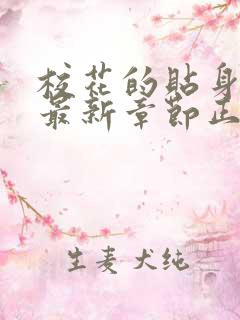 校花的贴身
最新章节正
生麦犬纯